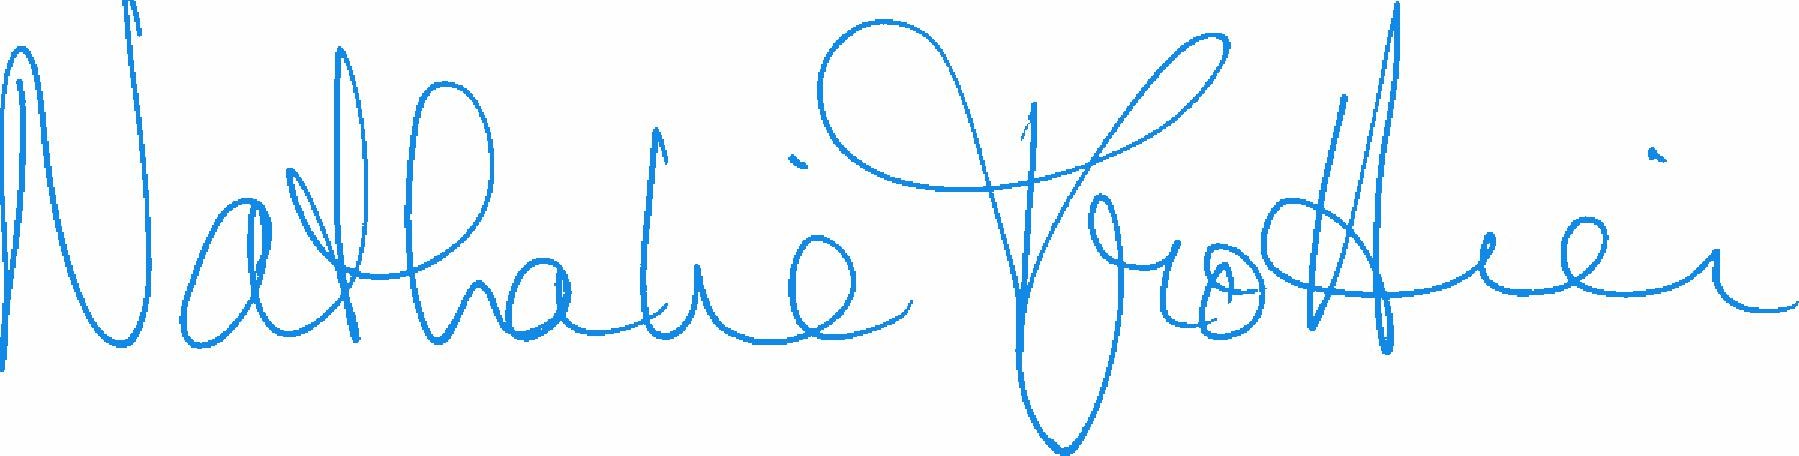 Nathalie Trottier